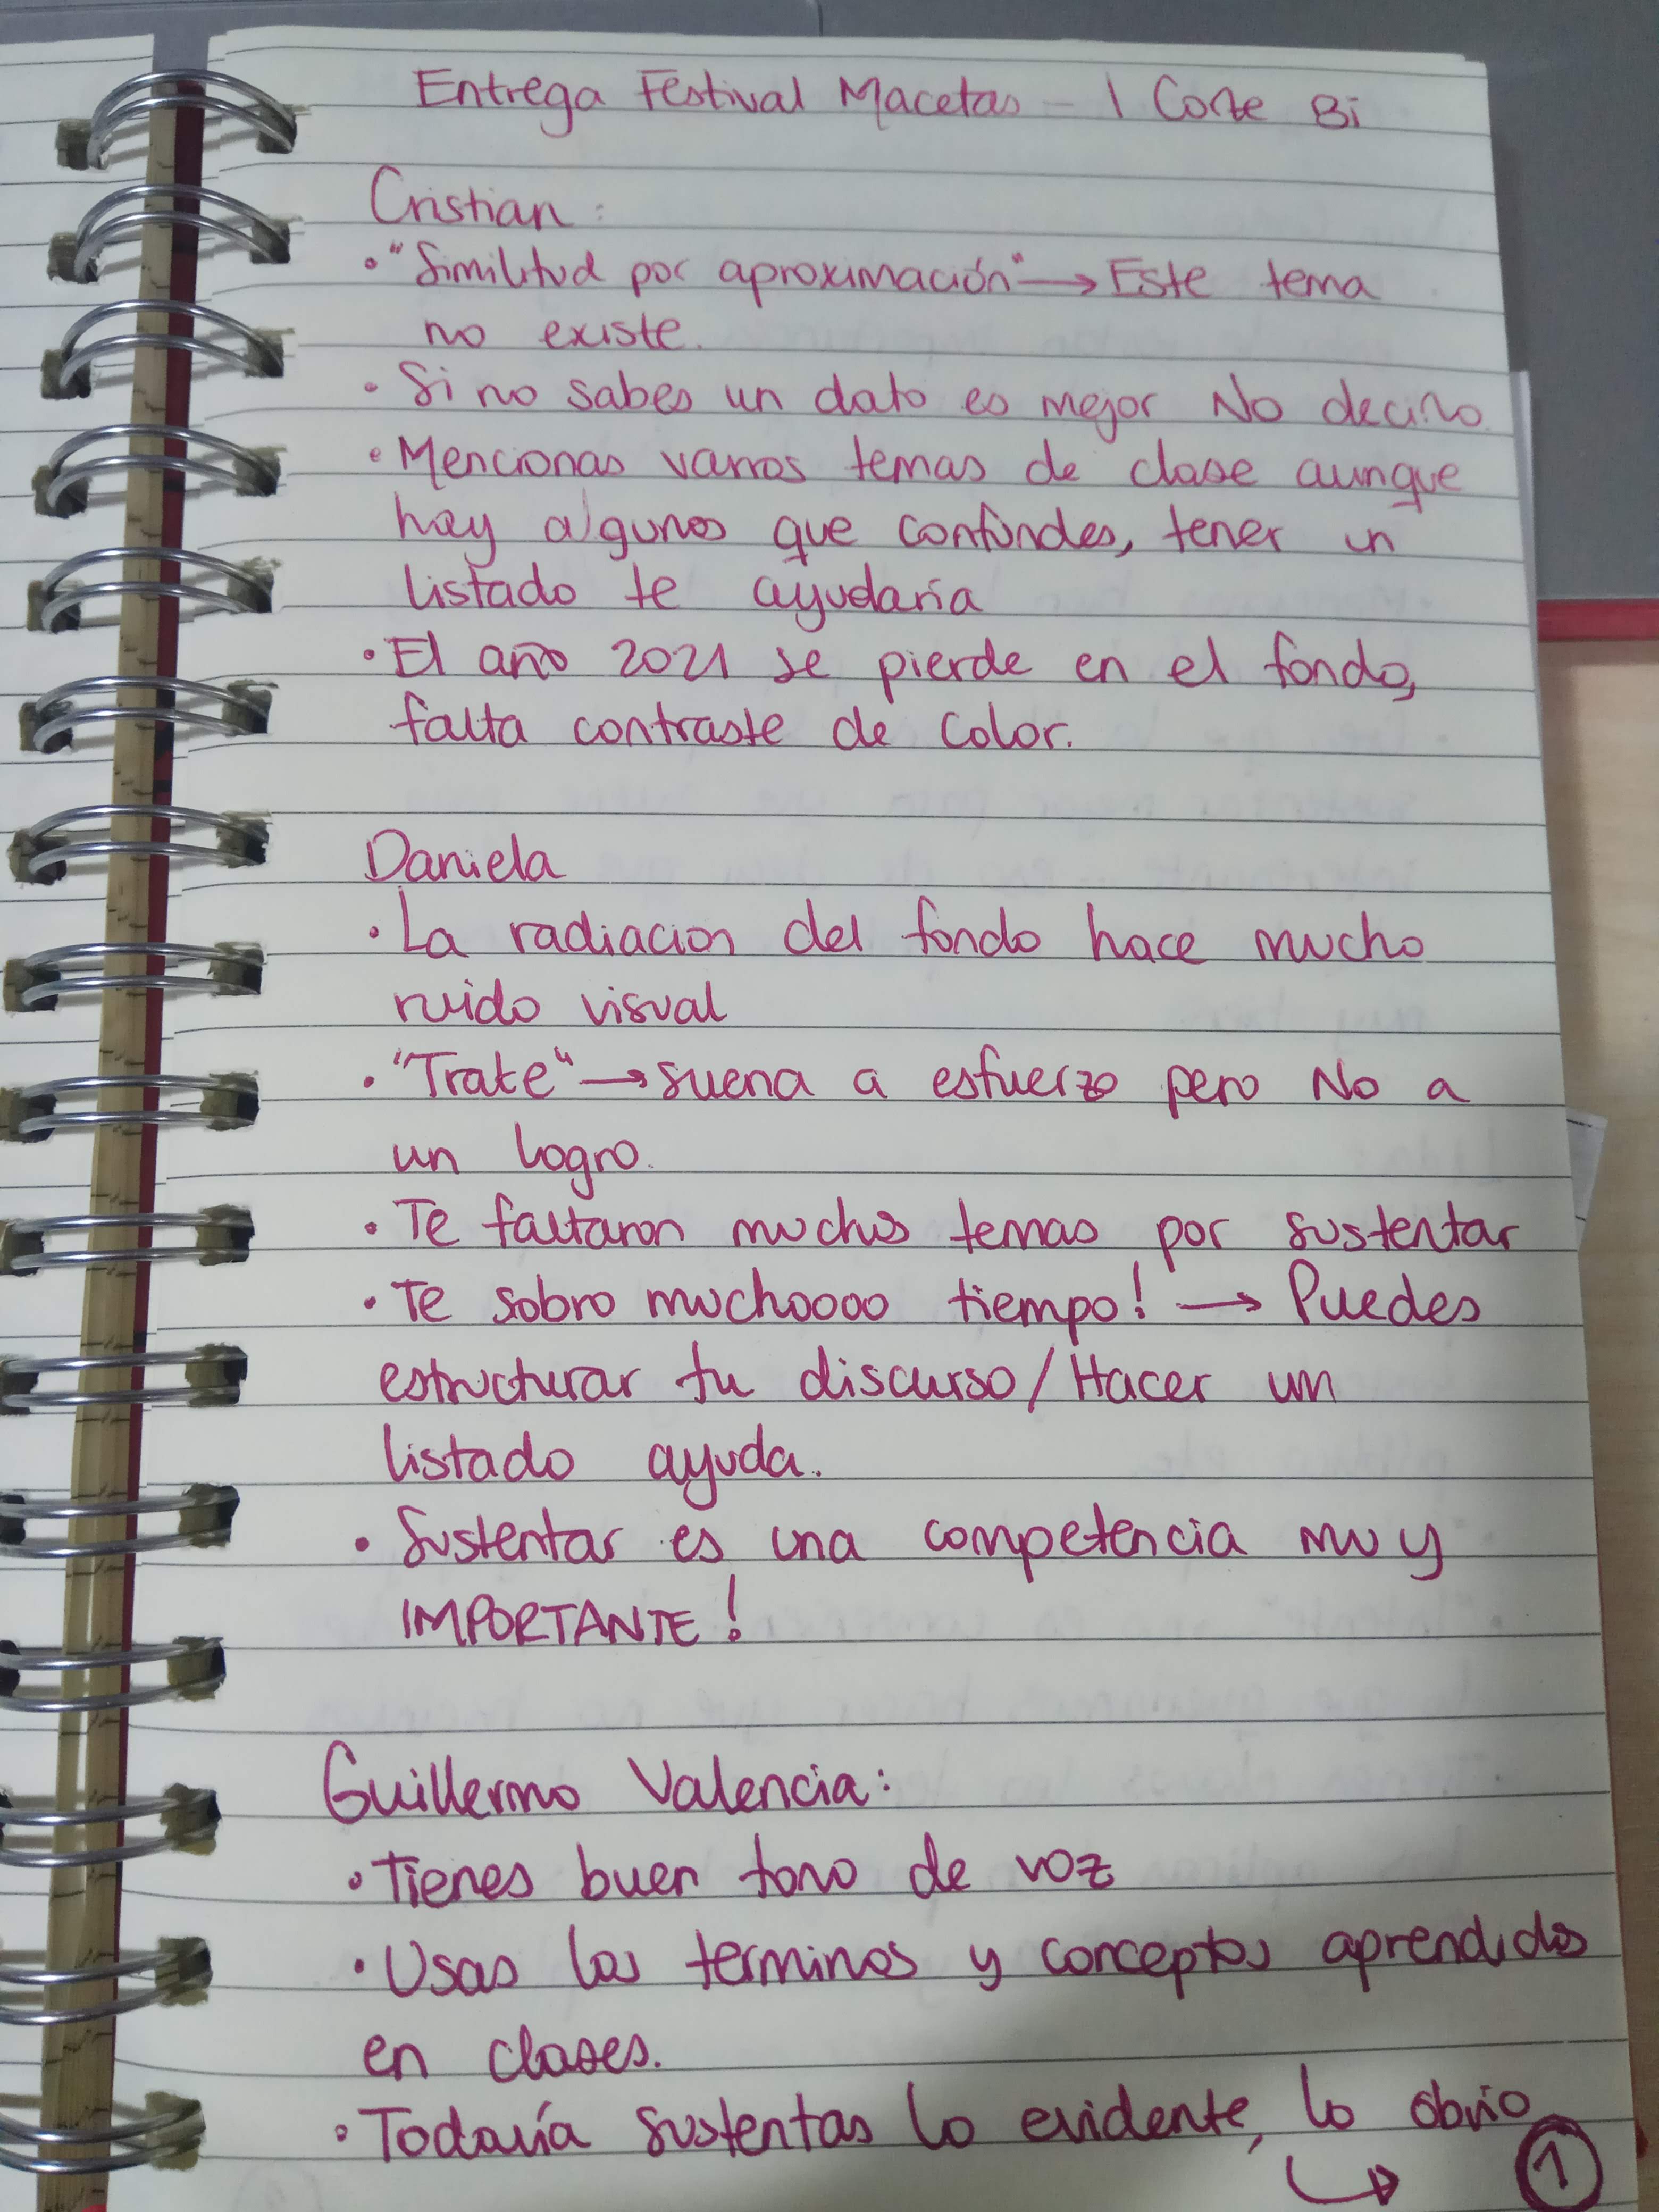 Entrega Festival Macetas - 1 Corte Bi
Cristian:
• "Similitud por aproximación" → Este tema
no existe.
• Si no sabes un dato es mejor No decirlo.
• Mencionas varios temas de clase aunque
hay algunos que confundes, tener un
listado te ayudaría
• El año 2021 se pierde en el fondo,
falta contraste de color.
Daniela
• La radiación del fondo hace mucho
ruido visual
• "Trate" → suena a esfuerzo pero No a
un logro.
• Te faltaron muchos temas por sustentar
• Te sobro muchoooo tiempo! → Puedes
estructurar tu discurso/Hacer un
listado ayuda.
• Sustentar es una competencia muy
IMPORTANTE!
Guillermo Valencia:
• Tienes buen tono de voz
• Usas los terminos y conceptos aprendidos
en clases.
• Todavía sustentas lo evidente, lo obvio
1